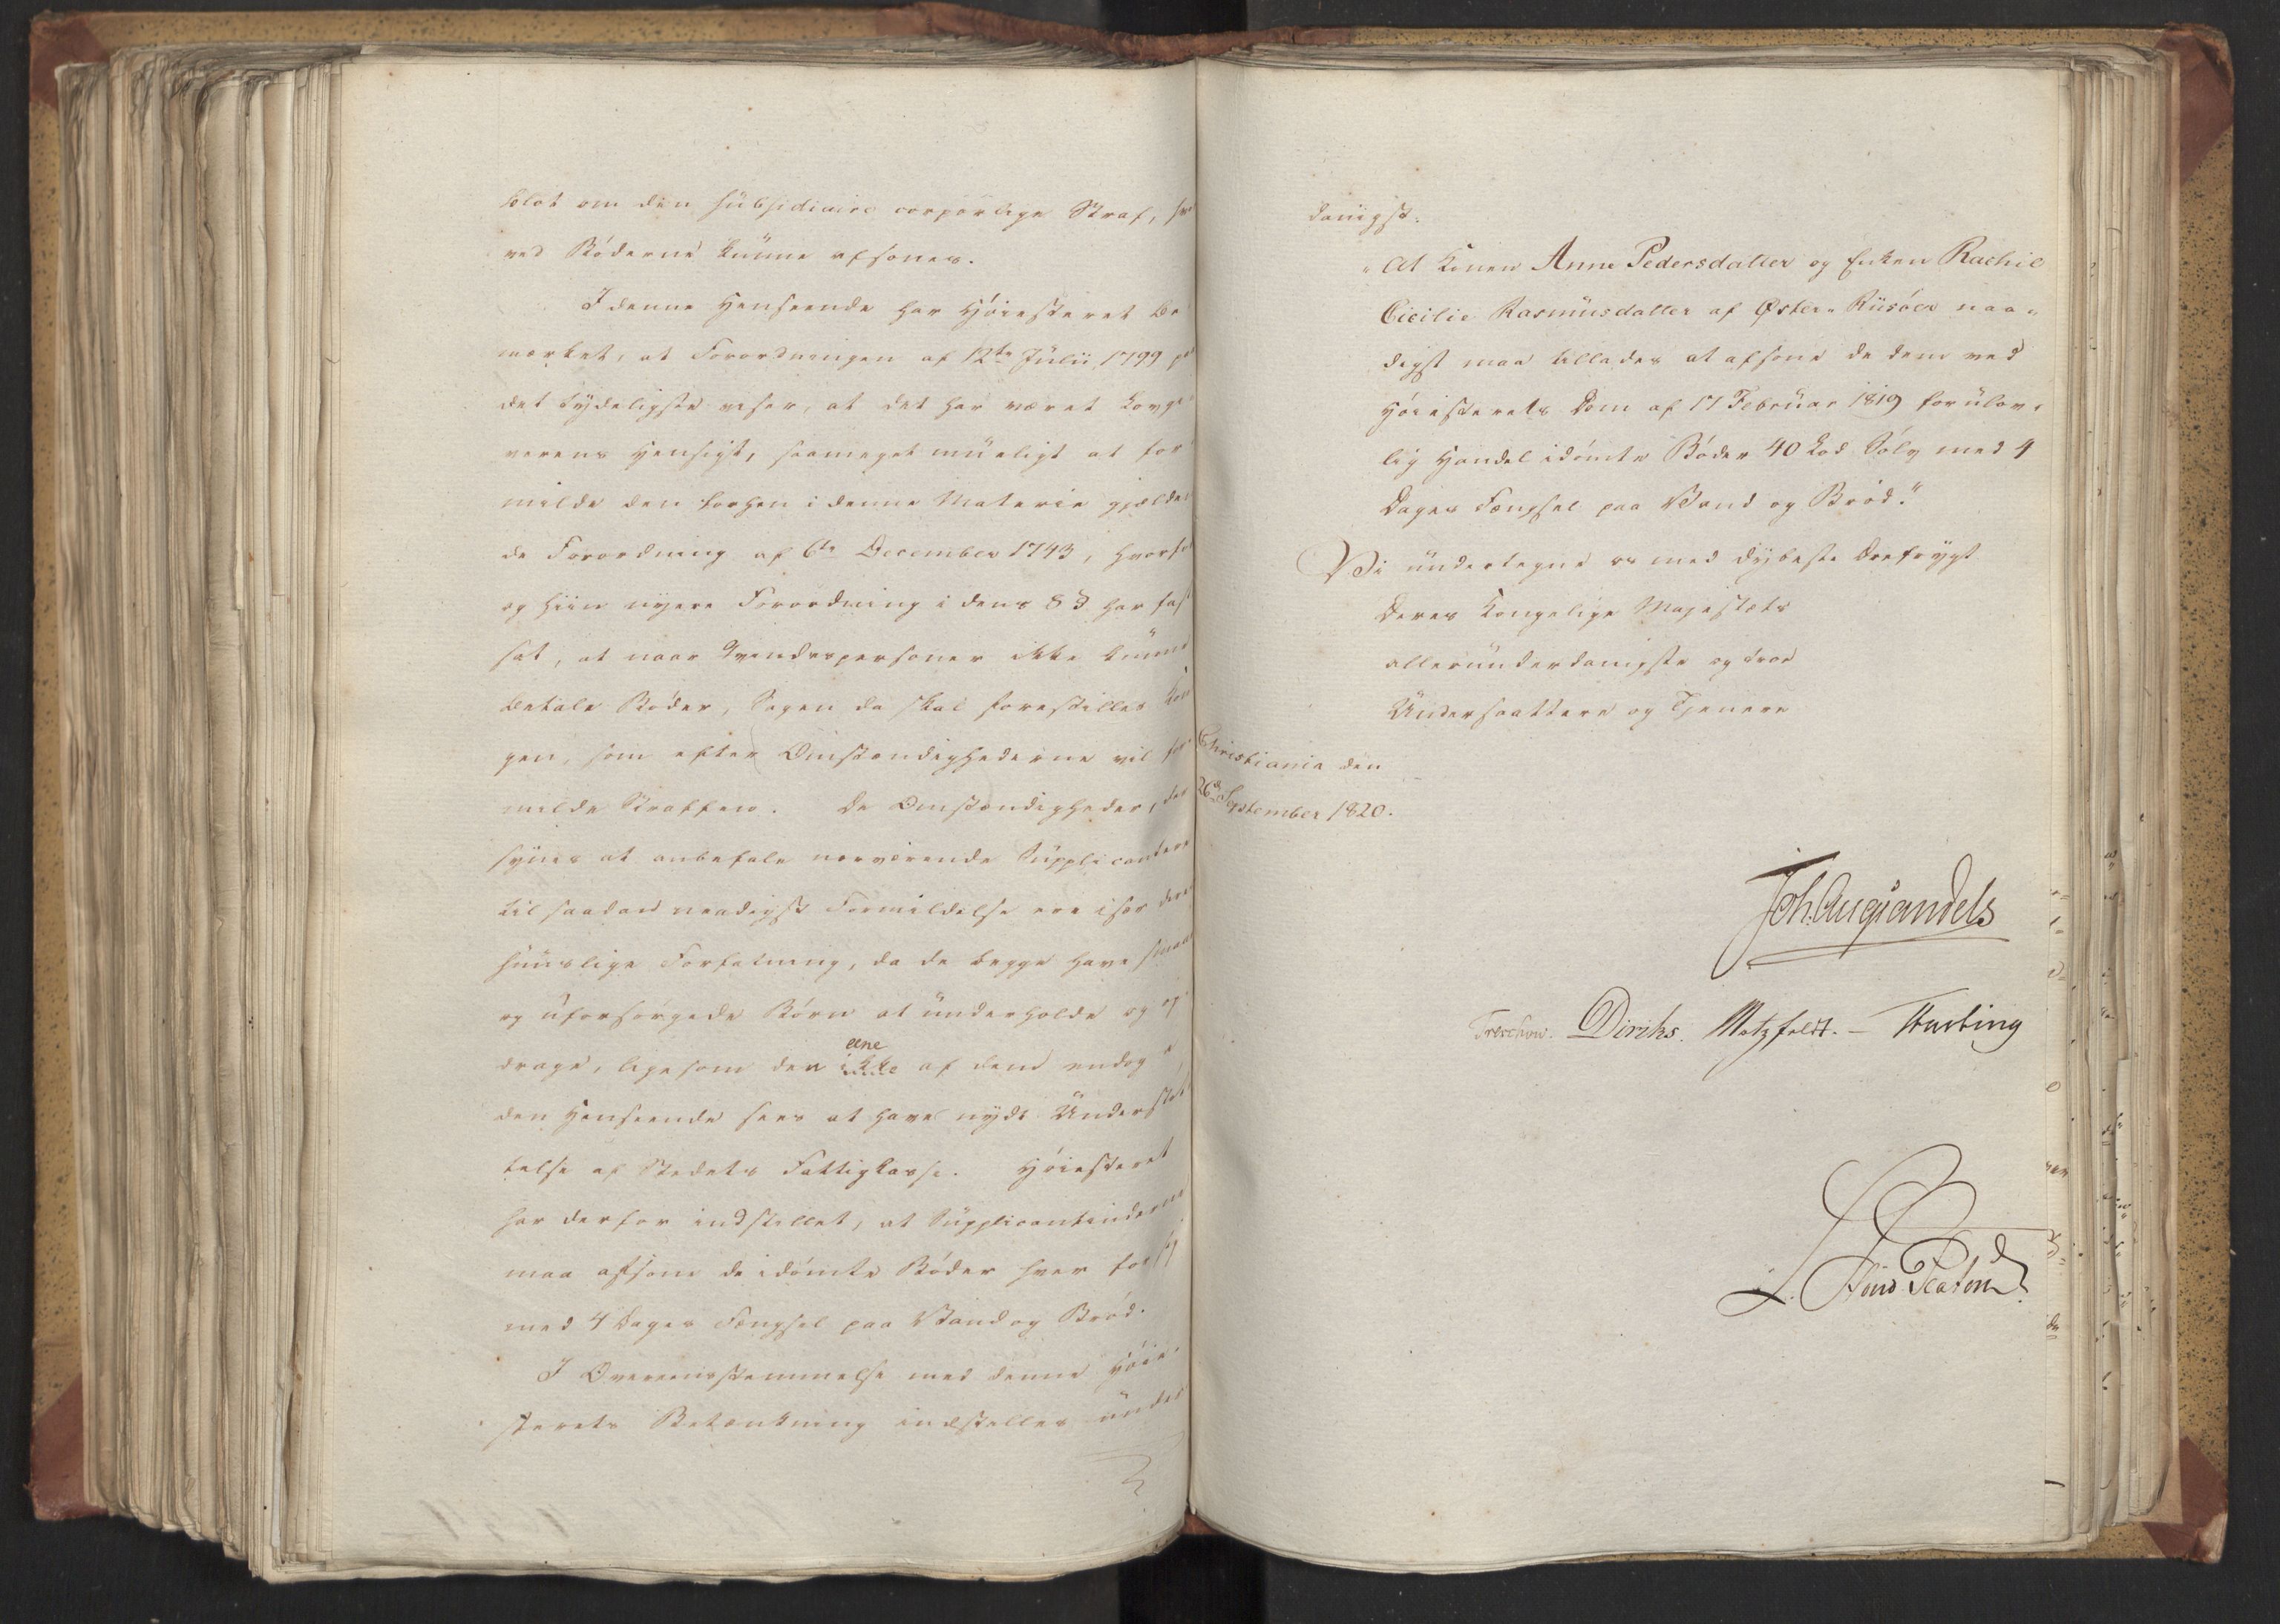 blot om den subsidiaire corporlige Straf, hvor
ved Bøderne kunne afsones.
I denne Henseende har Høiesteret be
mærket, at Forordningen af 12te Julii 1799 paa
det tydeligste viser, at det har været Lovgi
verens Hensigt, saameget mueligt at for
milde den forhen i denne Materie gjælden
de Forordning af 6te December 1743, hvorfor
og hiin nyere Forordning i dens 8 § har fast
sat, at naar Qvindespersoner ikke kunne
betale Bøder, Sagen da skal forestilles Kon
gen, som efter Omstændighederne vil for
milde Straffen. De Omstændigheder, der
synes at anbefale nærværende Supplicantere
til saadan naadigst Formildelse ere især deres
huuslige Forfatning, da de begge have smaa
og uforsørgede Børn at underholde og op
drage, ligesom den ikke af dem endog i
eene
den Henseende sees at have nydt Understøt
telse af Stedets Fattigkasse. Høiesteret
har derfor indstillet, at Supplicantinderne
maa afsone de idømte Bøder hver for sig
med 4 Dages Fængsel paa Vand og Brød.
I Overeensstemmelse med denne Høie
sterets Betænkning indstilles under
danigst:
"At Konen Anne Pedersdatter og Enken Rachil
Cicilie Rasmusdatter af Øster-Riisøer naa-
digst maa tillades at afsone de dem ved
Høiesterets Dom af 17 Februar 1819 for ulov-
lig Handel idømte Bøder 40 Lod Sølv med 4
Dages Fængsel paa Vand og Brød."
Vi undertegne os med dybeste Ærefrygt
Deres Kongelige Majestæts
allerunderdanigste og troe
Undersaattere og Tjenere
Christiania den
26de September 1820.
Joh. Aug Sandels
Treschow. Diriks. Motzfeldt. - Fasting